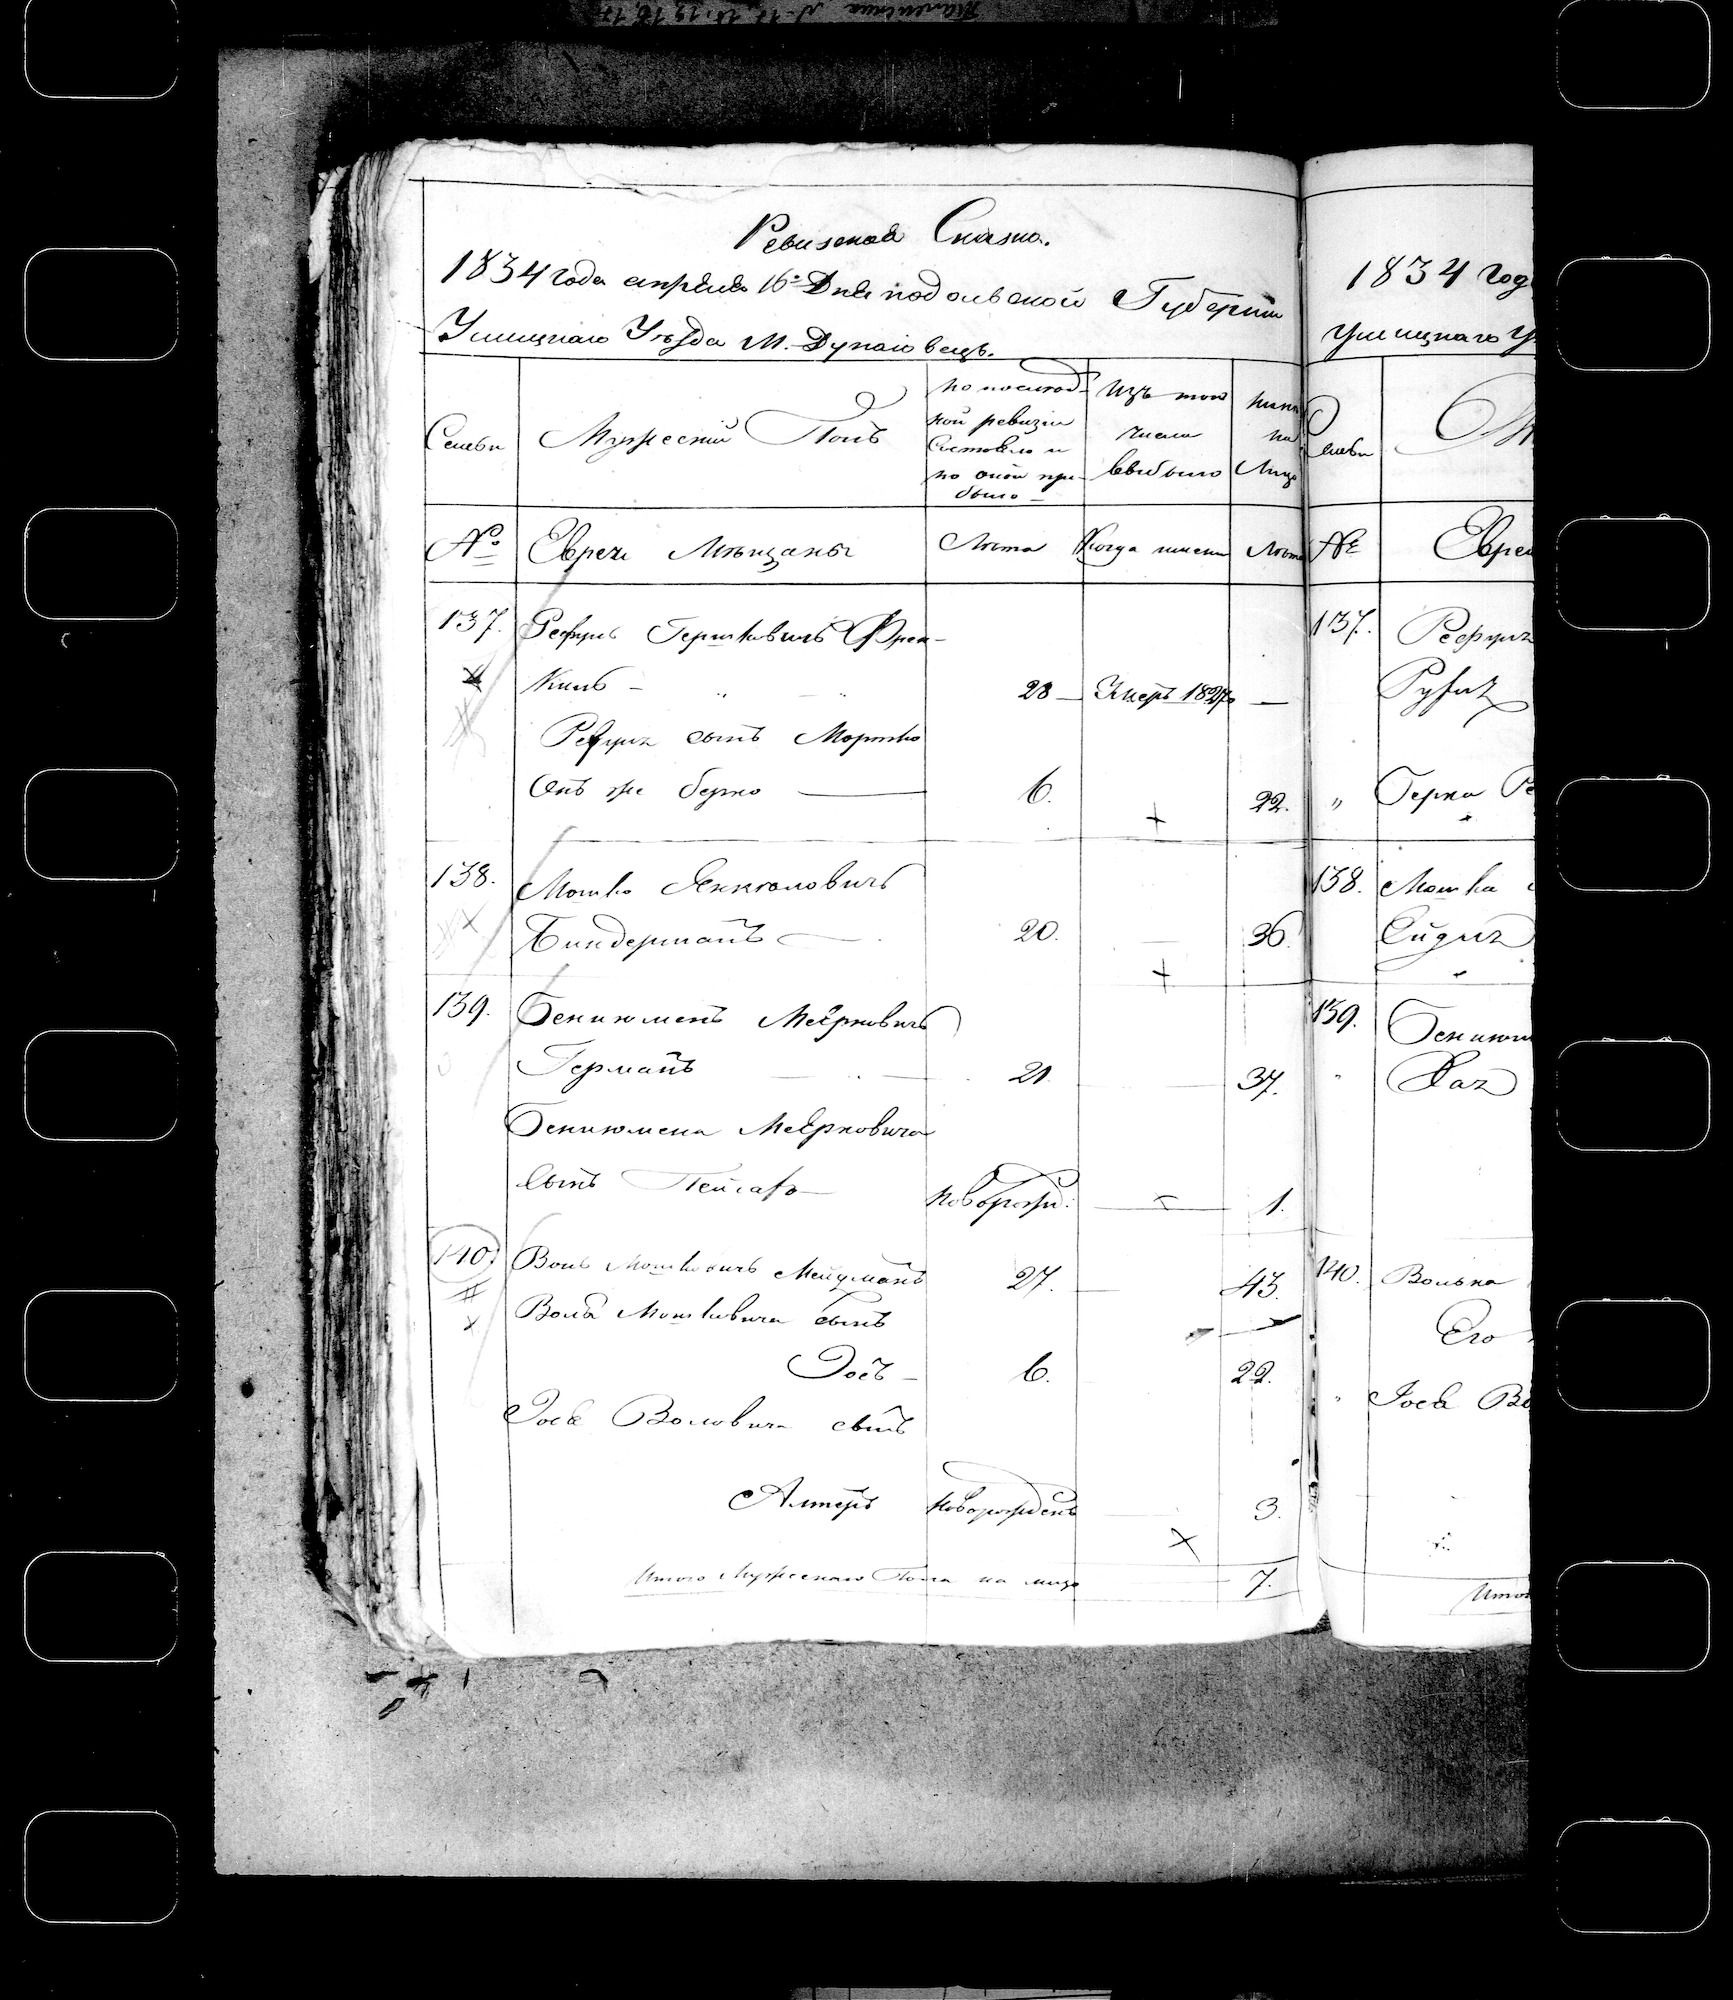 Ревизская Сказка.
1834 года апреля 16го Дня подольской Губернии
Ушицкаго Уѣзда М. Дунаіовецъ.
Семьи
Мужескій Полъ
по послѣд-
ней ревизіи
Состояло и
по оной при-
было
Изъ того
числа
выбыло
нынѣ
на
Лицо
№
Евреи Мѣщаны
Лѣта
Когда имянно
Лѣта
137.
Гершковичъ Френ-
кель
28
Умеръ 1827го
сынъ Мортко
Онъ же Берко
6.
22.
138.
Мошко Янкюловичъ
Биндерманъ
20.
36.
139.
Бениюменъ Меерковичъ
Германъ
21
37.
Бениюмена Меерковича
Сынъ Пейсахъ
Новорожд:
1.
140
Воль Мошковичъ
27.
43.
Воля Мошковича сынъ
Іосъ
6.
22.
Іося Воловича сынъ
Алтеръ
Новорожденъ
3.
Итого Мужескаго Пола на лицо
7.
1834 год
Ушицкаго У
Семьи
№
Евреи
137.
Герка
138.
Мошка
139.
140.
Волька
Его
Іося Во